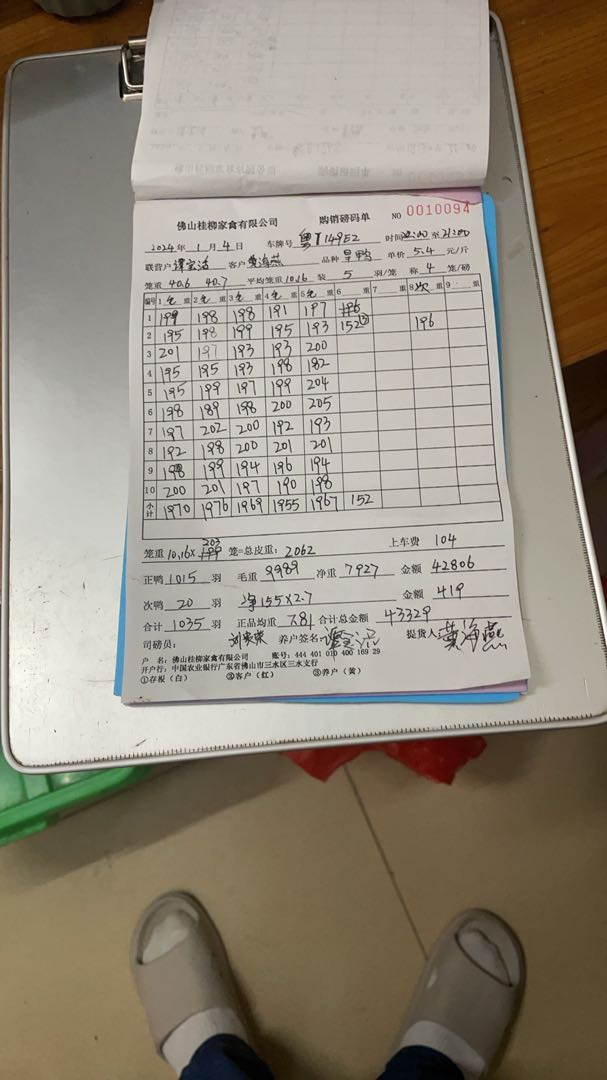 佛山桂柳家禽有限公司 购销磅码单 NO 0010094
2024年 1月 4日 车牌号 粤T149E2 时间 至 21:00
联营户 客户 黄海燕 品种 旱鸭 单价 5.4 元/斤
笼重 40.6 40.7 平均笼重 10.16 装 5 羽/笼 称 4 笼/磅
编号 1 毛 重 2 毛 重 3 毛 重 4 毛 重 5 毛 重 6 重 7 重 8 次 重 9 重
1 199 198 198 191 197 196
2 195 198 199 195 193 152③ 196
3 201 197 193 193 200
4 195 195 193 198 182
5 195 199 197 199 204
6 198 189 198 200 205
7 197 202 200 192 193
8 192 198 200 201 201
9 198 199 194 196 194
10 200 201 197 190 198
小计 1970 1976 1969 1955 1967 152
笼重 10.16× 199 203 笼=总皮重: 2062 上车费 104
正鸭 1015 羽 毛重 9989 净重 7927 金额 42806
次鸭 20 羽 净155×2.7 金额 419
合计 1035 羽 正品均重 7.81 合计总金额 43329
司磅员: 养户签名: 提货人 黄海燕
户 名: 佛山桂柳家禽有限公司 账号: 444 401 010 400 169 29
开户行: 中国农业银行广东省佛山市三水区三水支行
①存根(白) ②客户(红) ③养户(黄)